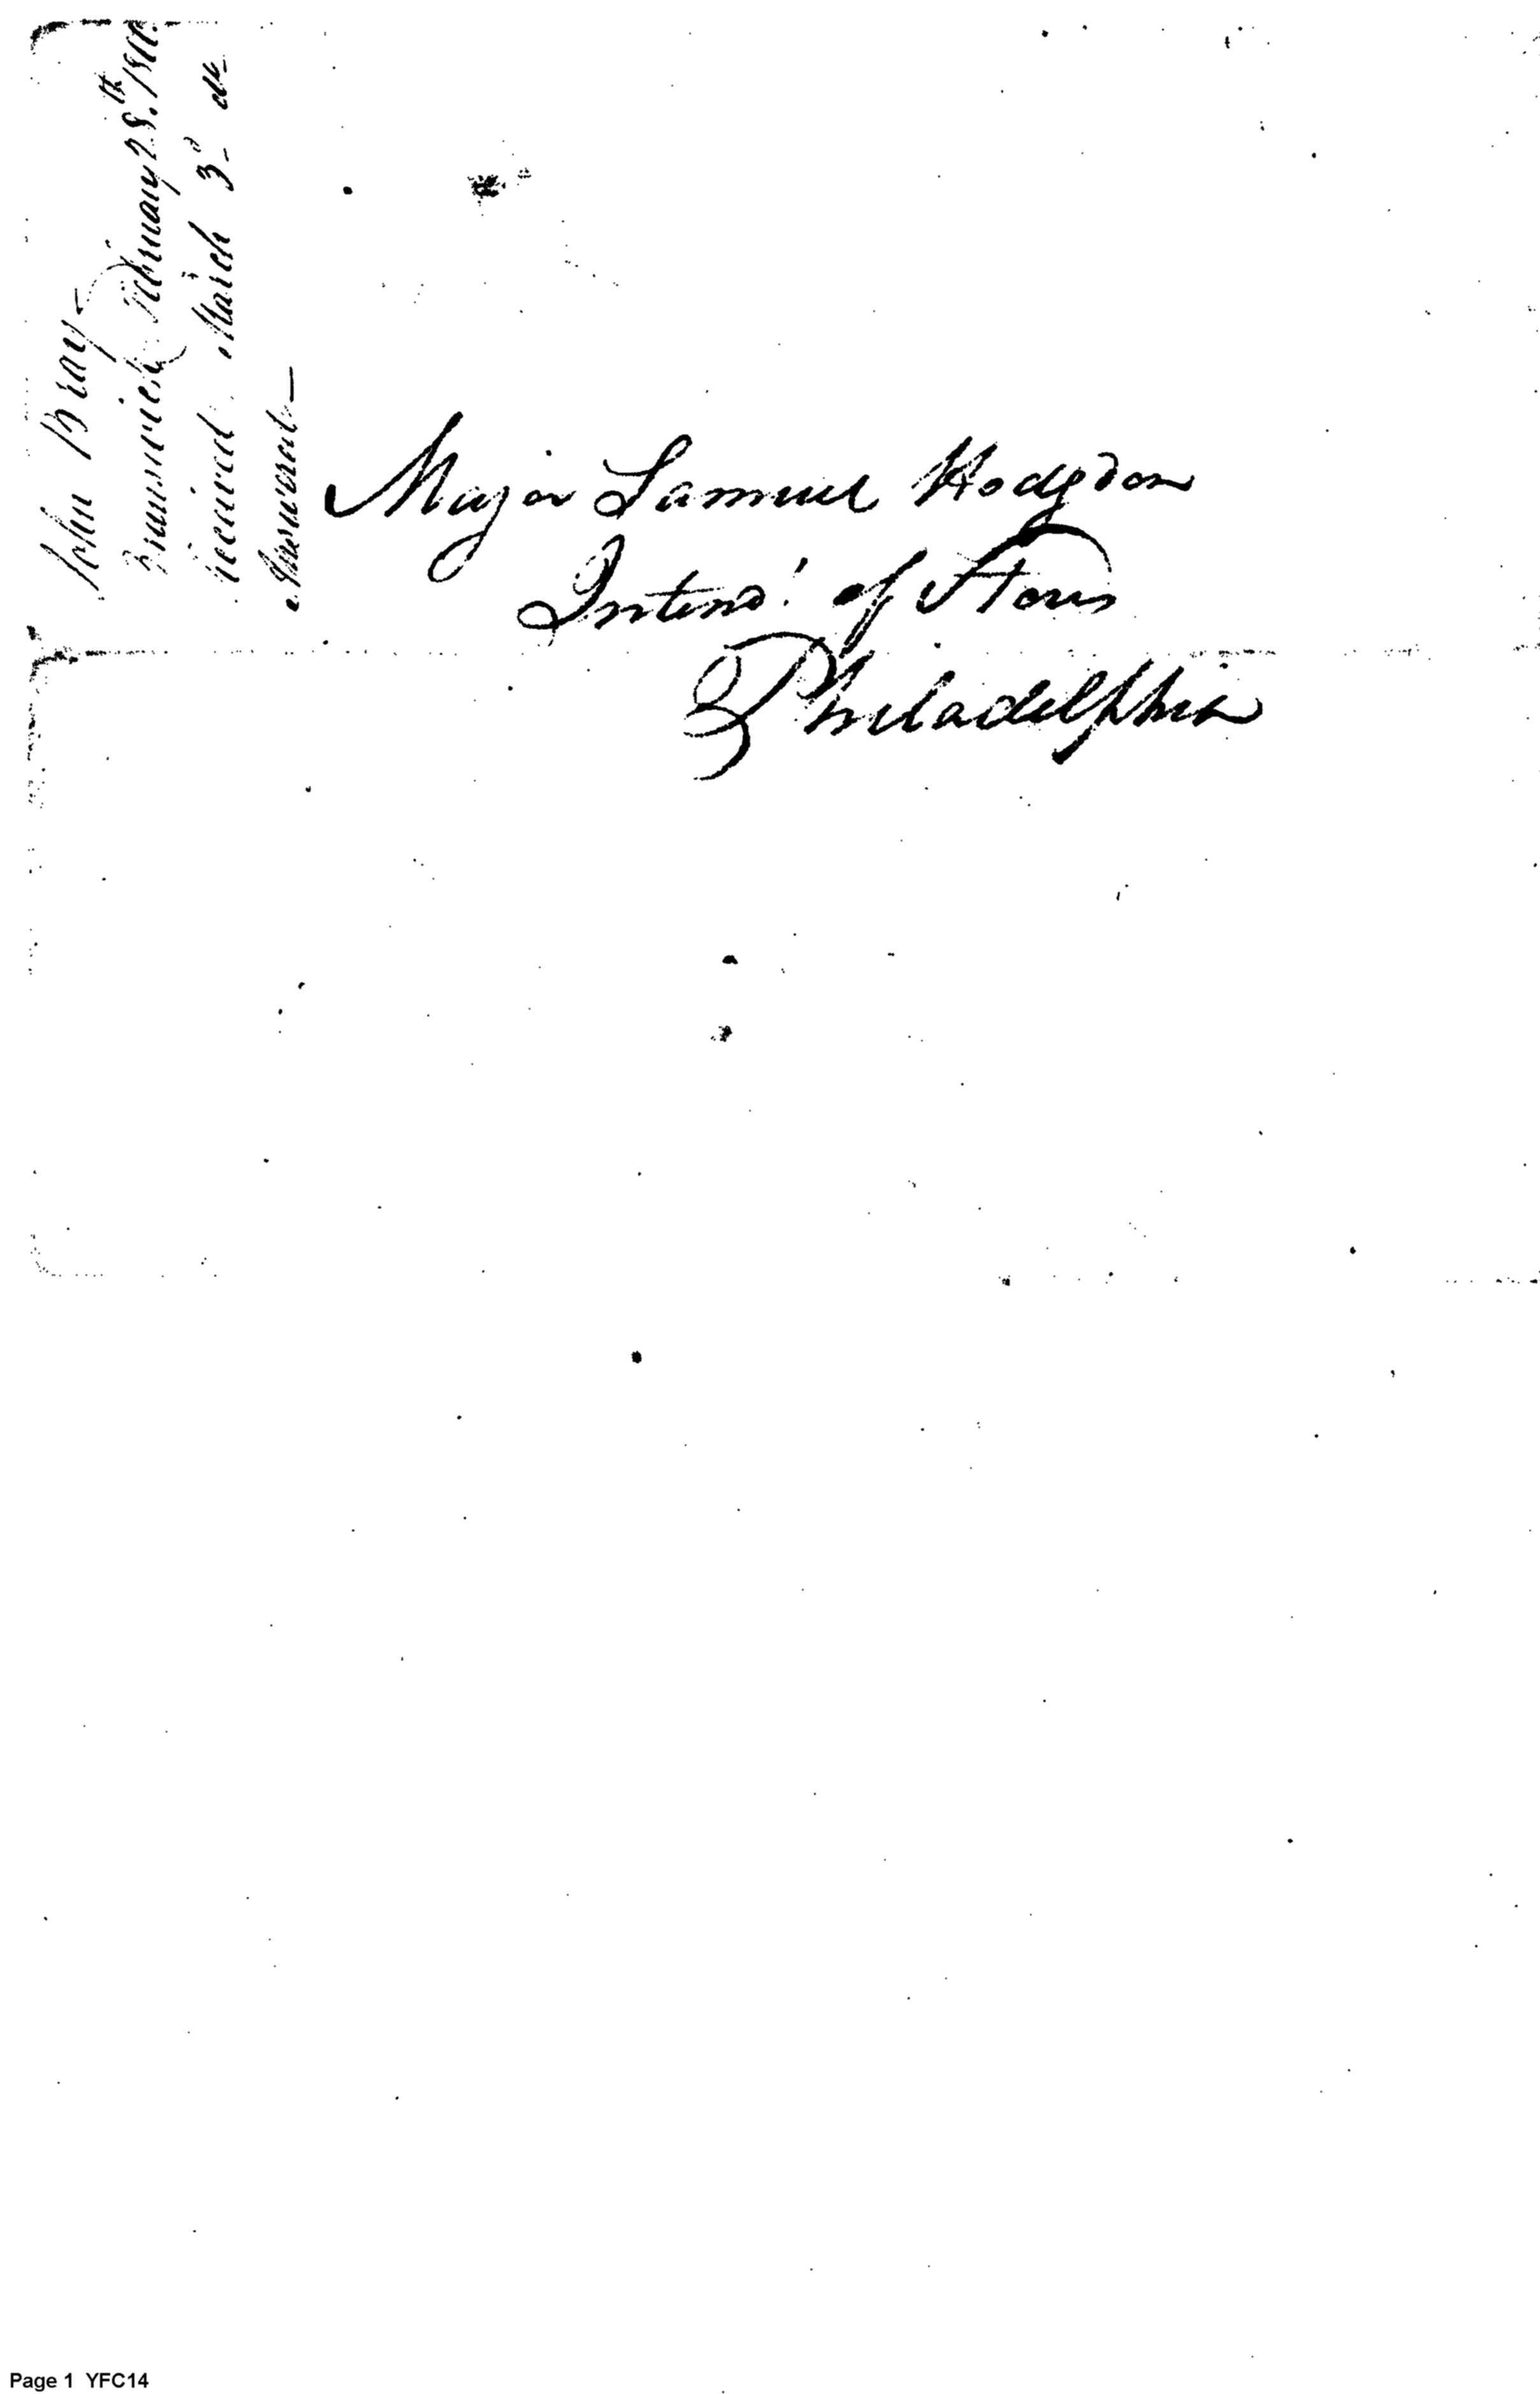 John Bray
Brunswick February 28.th 1800.
received March 3d do
Answered—
Major Samuel Hodgdon
Intend.t of Stores
Philadelphia
Page 1 YFC14